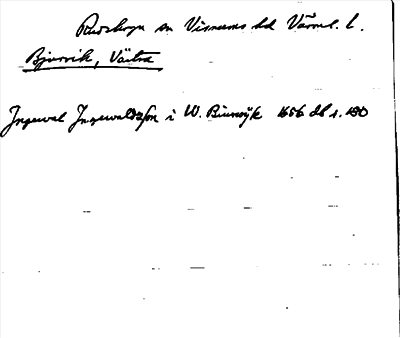 Rudskoga sn Visnums hd Värml. l.
Bjurvik, Västra
Ingewal Ingewaldzson i W. Biurwyk 1656 db s. 190